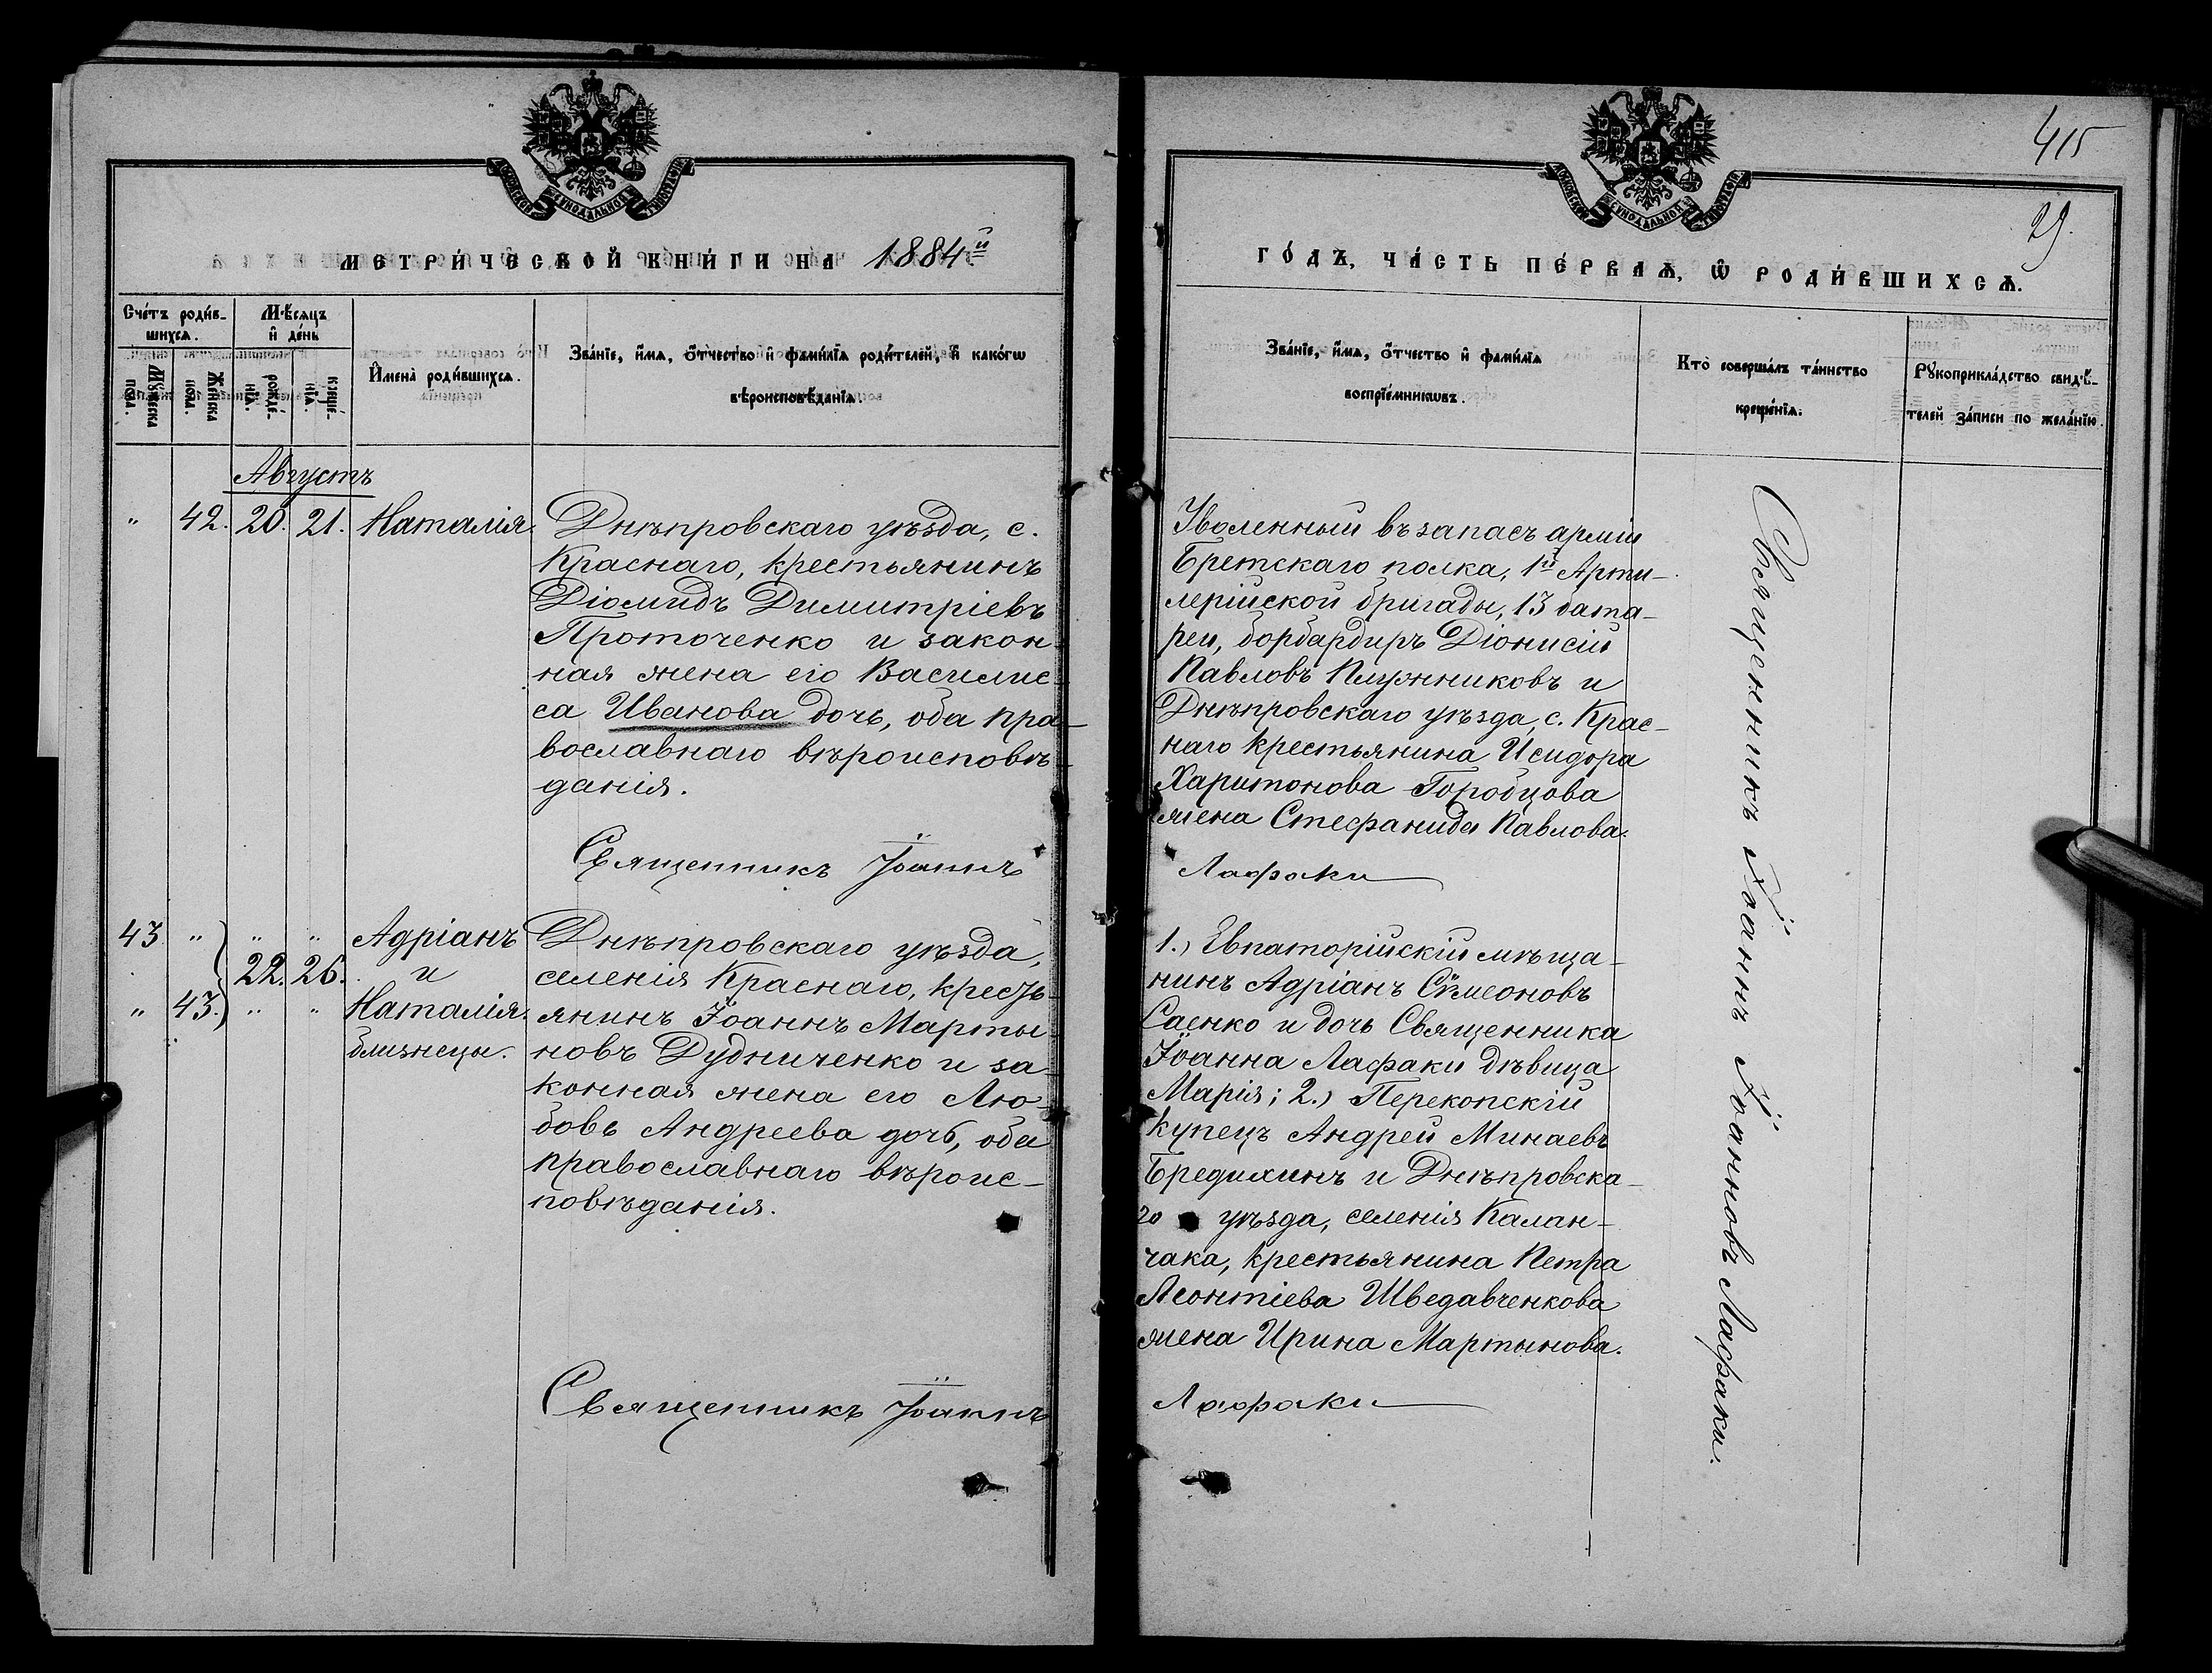 415
29.
МОСКОВСКОЙ СѴНОДАЛЬНОЙ ТИПОГРАФІИ
МОСКОВСКОЙ СѴНОДАЛЬНОЙ ТИПОГРАФІИ
МЕТРИ́ЧЕСКОЙ КНИ́ГИ НА 1884й
ГО́ДЪ, ЧА́СТЬ ПЕ́РВАѦ, Ѡ РОДИ́ВШИХСѦ.
Сче́тъ роди́в-
шихсѧ.
Мꙋ́жеска
пола.
Же́нска
пола.
Мѣ́сѧцъ
и҆ де́нь
рожде́-
нїѧ.
креще́-
нїѧ.
И҆мена̀ роди́вшихсѧ.
Зва́нїе, и҆́мѧ, ѻ҆́тчество и҆ фами́лїѧ роди́телей, и҆ како́гѡ
вѣроисповѣ́данїѧ.
Зва́нїе, и҆́мѧ, ѻ҆́тчество и҆ фами́лїѧ
воспрїе́мникѡвъ.
Кто̀ соверша́лъ та́инство
креще́нїѧ.
Рꙋкоприкла́дство свидѣ́-
телей за́писи по жела́нїю.
Августъ
" 42. 20. 21. Наталія.
Днѣпровскаго уѣзда, с.
Краснаго, крестьянинъ
Діомидъ Димитріевъ
Проточенко и закон-
ная жена его Василис-
са Иванова дочь, оба пра-
вославнаго вѣроисповѣ-
данія.
Священникъ Іоаннъ
Уволенный въ запасъ арміи
Бретскаго полка, 1й Арти-
лерійской бригады, 13 бата-
реи, борбардиръ Діонисій
Павловъ Плужниковъ и
Днѣпровскаго уѣзда, с. Крас-
наго крестьянина Исидора
Харитонова Горобцова
жена Стефанида Павлова.
Лафаки
43 " " " Адріанъ
22. 26. и
" 43. " " Наталія.
близнецы.
Днѣпровскаго уѣзда,
селенія Краснаго, кресть-
янинъ Іоаннъ Марты-
новъ Дудниченко и за-
конная жена его Лю-
бовь Андреева дочь, оба
православнаго вѣроис-
повѣданія.
Священникъ Іоаннъ
1.) Евпаторійскій мѣща-
нинъ Адріанъ Сѵмеоновъ
Саенко и дочь Священника
Іоанна Лафаки дѣвица
Марія; 2.) Перекопскій
купецъ Андрей Минаевъ
Бредихинъ и Днѣпровска-
го уѣзда, селенія Калан-
чака, крестьянина Петра
Леонтіева Шведавченкова
жена Ирина Мартынова.
Лафаки
Священникъ Іоаннъ Іоанновъ Лафаки.